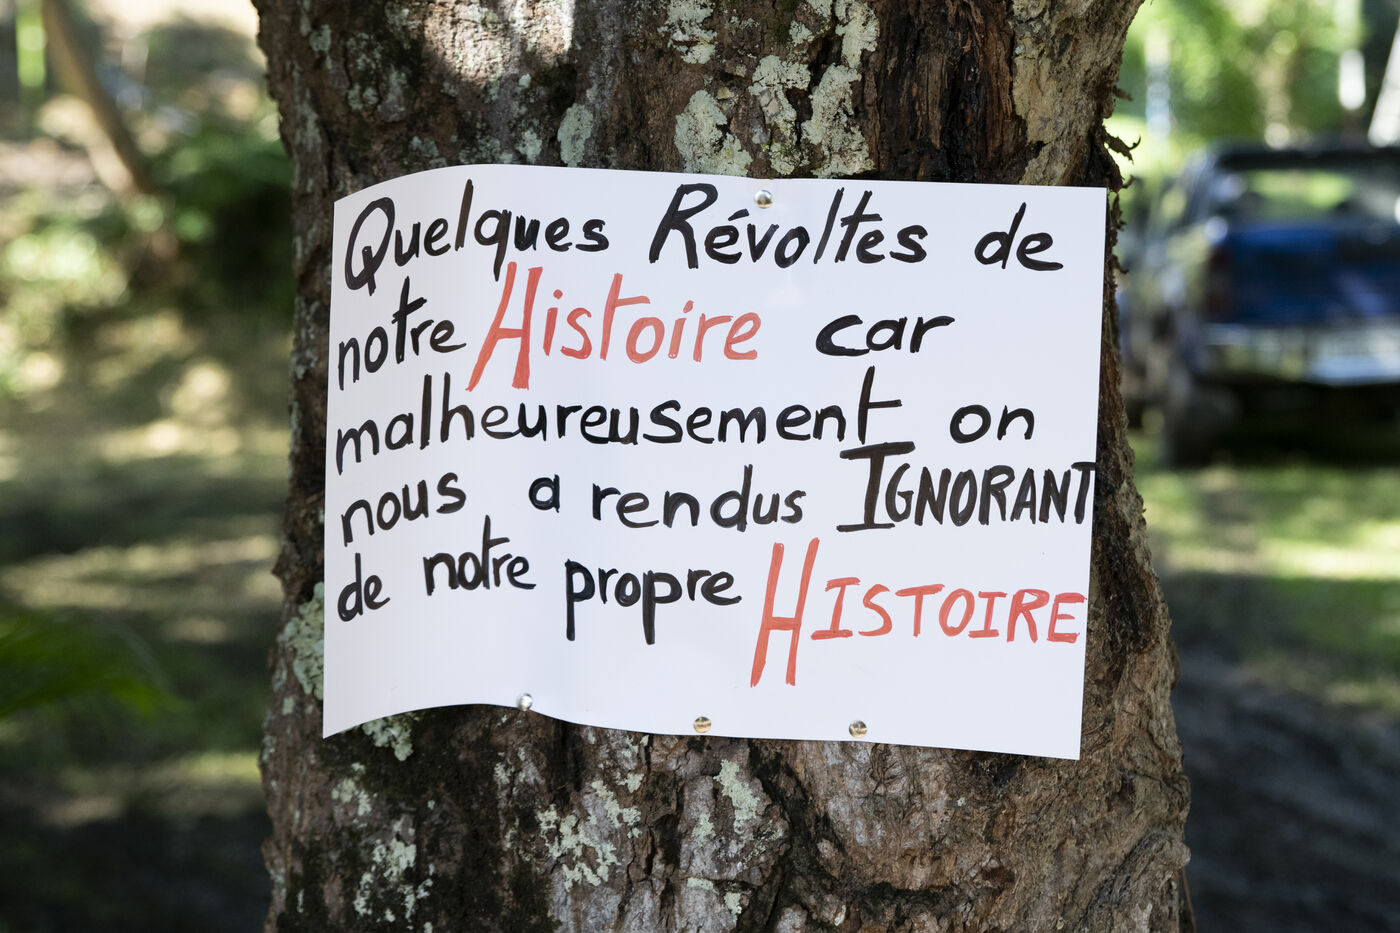 Quelques Révoltes de
notre Histoire car
malheureusement on
nous a rendus IGNORANT
de notre propre HISTOIRE